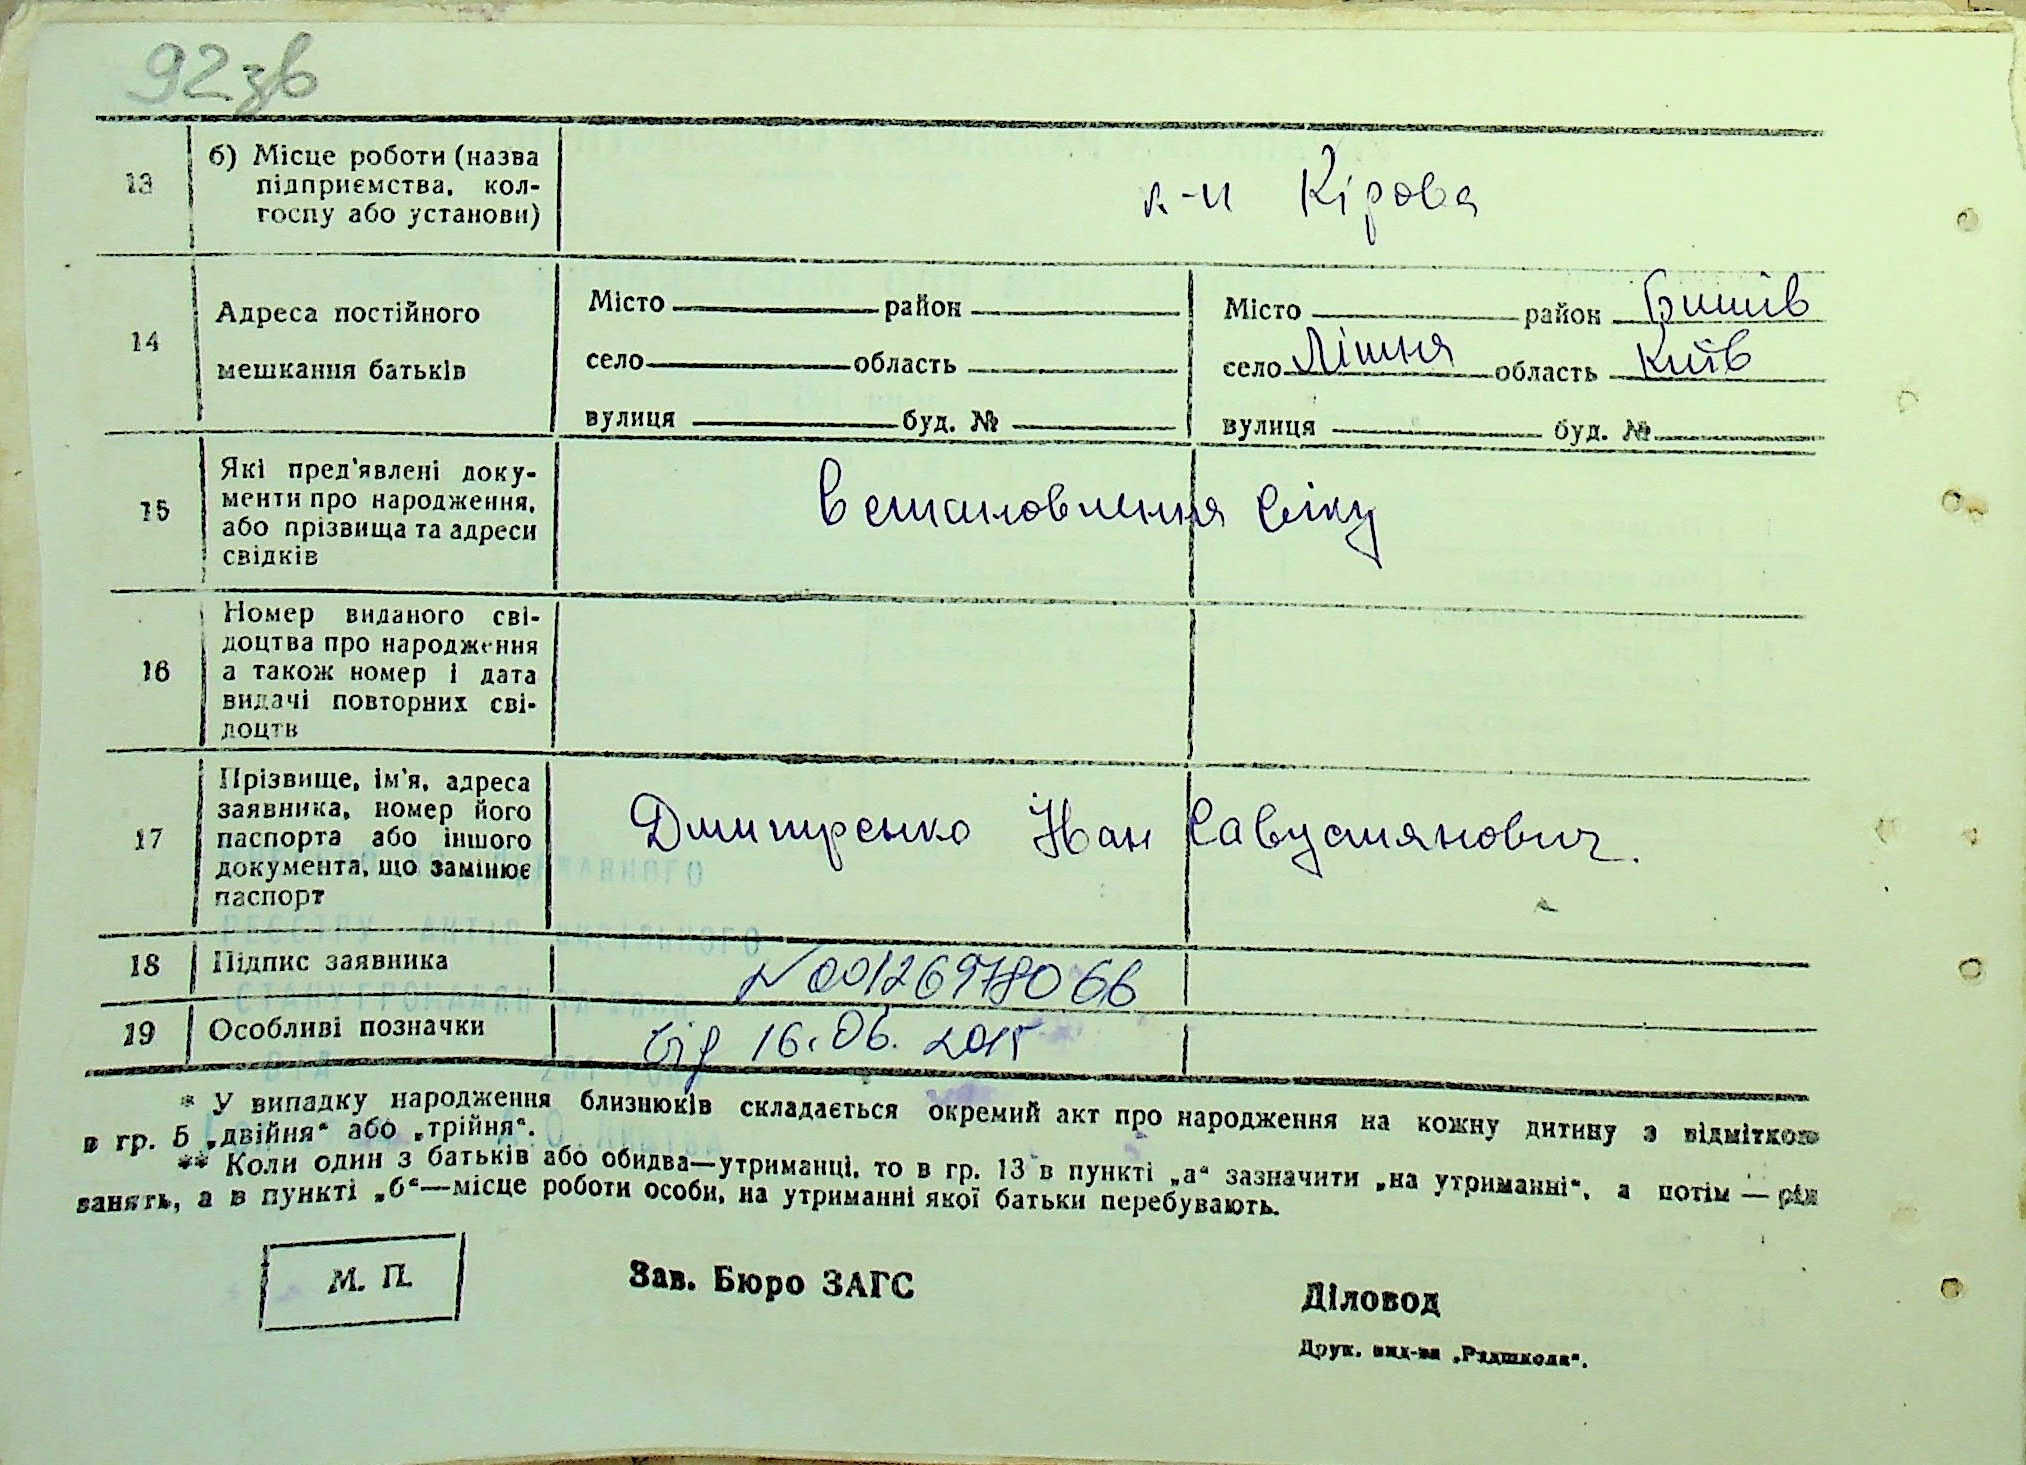 92зв
13
б) Місце роботи (назва
підприємства, кол-
госпу або установи)
к-п Кірова
14
Адреса постійного
мешкання батьків
Місто район
село область
вулиця буд. №
Місто район Бишів
село Лішня область Київ
вулиця буд. №
15
Які пред'явлені доку-
менти про народження,
або прізвища та адреси
свідків
встановлення віку
16
Номер виданого сві-
доцтва про народження
а також номер і дата
видачі повторних сві-
доцтв
17
Прізвище, ім'я, адреса
заявника, номер його
паспорта або іншого
документа, що замінює
паспорт
Дмитренко Іван Савустянович.
18
Підпис заявника
N 00126978066
19
Особливі позначки
від 16.06.2015
* У випадку народження близнюків складається окремий акт про народження на кожну дитину з відміткою
в гр. 5 „двійня“ або „трійня“.
** Коли один з батьків або обидва—утриманці, то в гр. 13 в пункті „а“ зазначити „на утриманні“, а потім — рід
занять, а в пункті „б“—місце роботи особи, на утриманні якої батьки перебувають.
М. П.
Зав. Бюро ЗАГС
Діловод
Друк. вид-ва „Радшкола“.